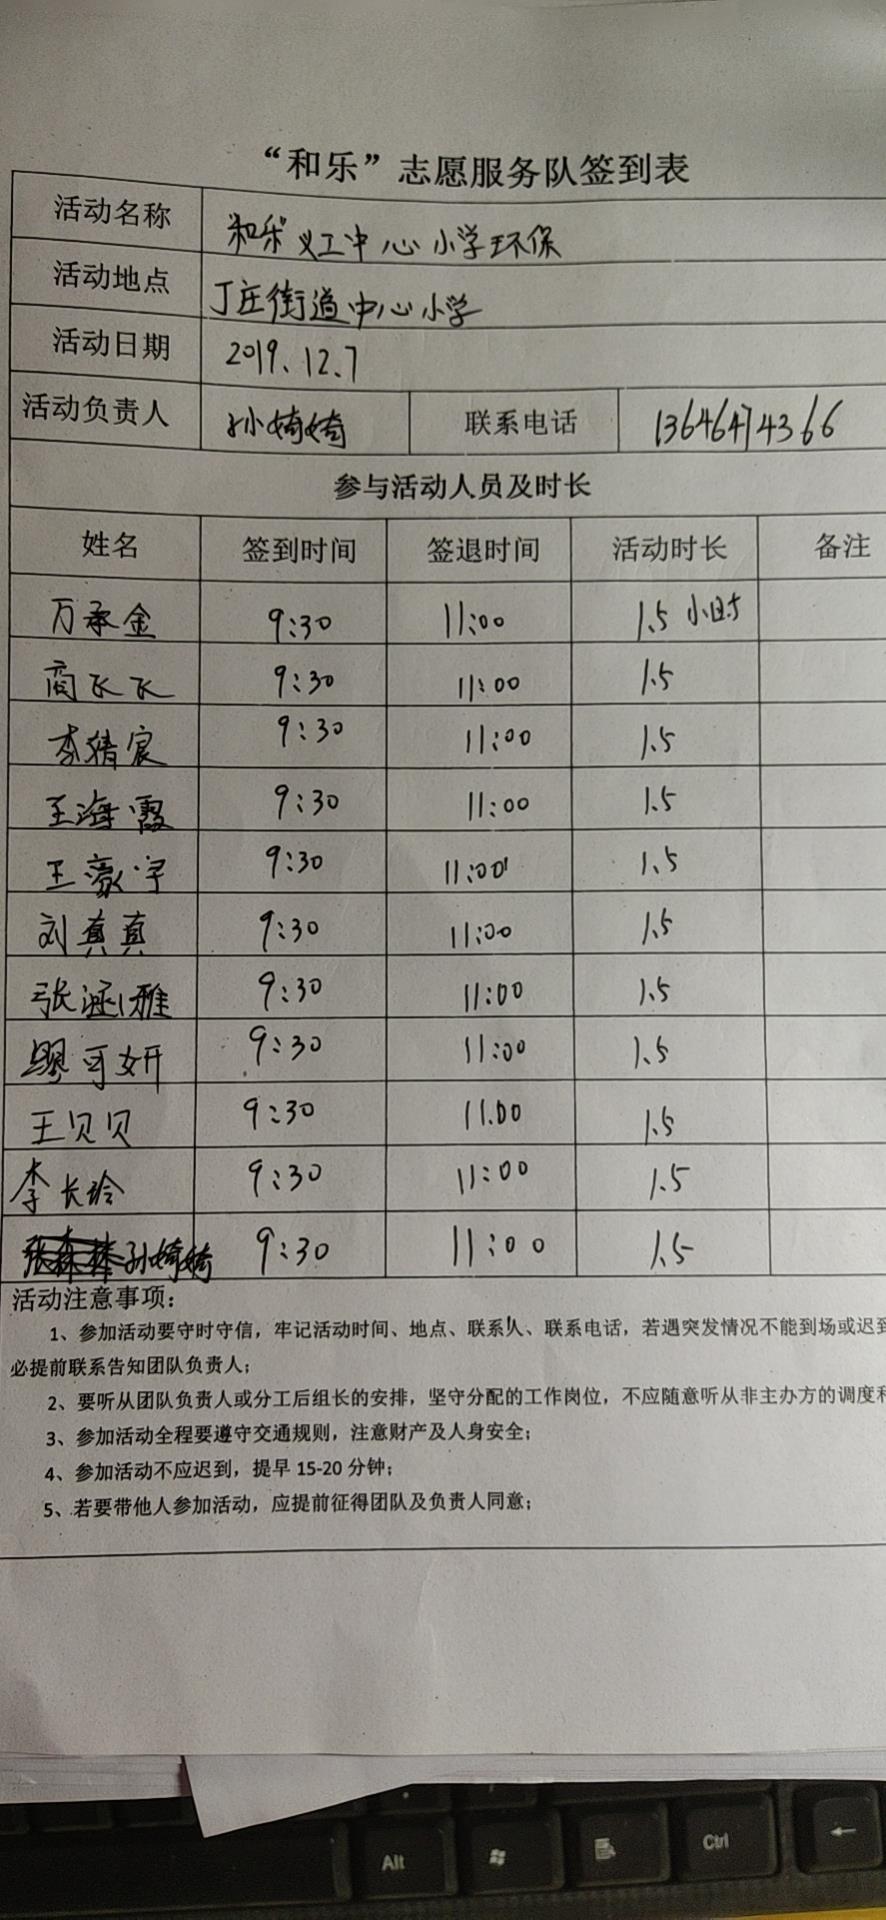 “和乐”志愿服务队签到表
活动名称 和乐义工中心小学环保
活动地点 丁庄街道中心小学
活动日期 2019.12.7
活动负责人 孙婍婍 联系电话 13646474366
参与活动人员及时长
姓名 签到时间 签退时间 活动时长 备注
万承金 9:30 11:00 1.5小时
商飞飞 9:30 11:00 1.5
李婧宸 9:30 11:00 1.5
王海霞 9:30 11:00 1.5
王豪宇 9:30 11:00 1.5
刘真真 9:30 11:00 1.5
张涵雅 9:30 11:00 1.5
缪可妍 9:30 11:00 1.5
王贝贝 9:30 11.00 1.5
李长玲 9:30 11:00 1.5
孙婍婍 9:30 11:00 1.5
活动注意事项：
1、参加活动要守时守信，牢记活动时间、地点、联系人、联系电话，若遇突发情况不能到场或迟到
必提前联系告知团队负责人；
2、要听从团队负责人或分工后组长的安排，坚守分配的工作岗位，不应随意听从非主办方的调度和
3、参加活动全程要遵守交通规则，注意财产及人身安全；
4、参加活动不应迟到，提早15-20分钟；
5、若要带他人参加活动，应提前征得团队及负责人同意；
Alt Ctrl